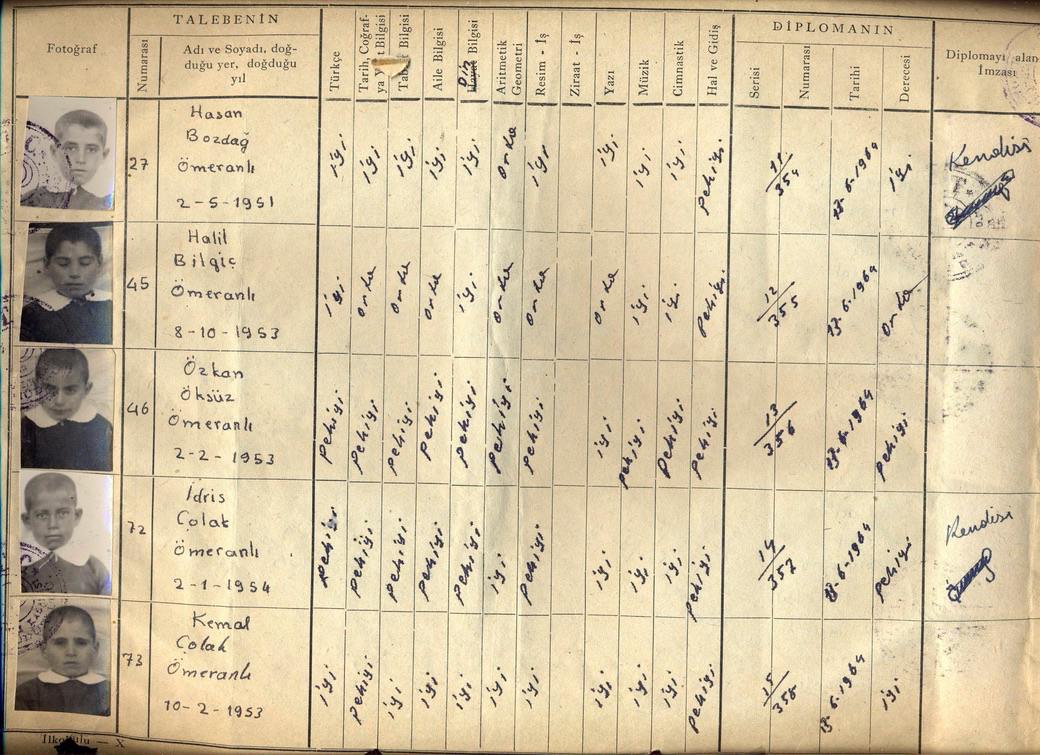 TALEBENİN
DİPLOMANIN
Fotoğraf
Numarası
Adı ve Soyadı, doğ-
duğu yer, doğduğu
yıl
Türkçe
Tarih, Coğraf-
ya Bilgisi
Bilgisi
Aile Bilgisi
Din Bilgisi
Aritmetik
Geometri
Resim - İş
Ziraat - İş
Yazı
Müzik
Cimnastik
Hal ve Gidiş
Serisi
Numarası
Tarihi
Derecesi
Diplomayı alan
İmzası
27
Hasan
Bozdağ
Ömeranlı
2-5-1951
iyi iyi iyi iyi iyi Orta iyi iyi iyi iyi Pekiyi 11/354 17-6-1964 iyi
Kendisi
45
Halil
Bilgiç
Ömeranlı
8-10-1953
iyi Orta Orta Orta iyi Orta Orta Orta iyi iyi Pekiyi 12/355 17-6-1964 Orta
46
Özkan
Öksüz
Ömeranlı
2-2-1953
Pekiyi Pekiyi Pekiyi Pekiyi Pekiyi Pekiyi Pekiyi iyi Pekiyi Pekiyi Pekiyi 13/356 17-6-1964 Pekiyi
72
İdris
Çolak
Ömeranlı
2-1-1954
Pekiyi Pekiyi Pekiyi Pekiyi Pekiyi iyi Pekiyi iyi iyi iyi Pekiyi 14/357 17-6-1964 Pekiyi
Kendisi
73
Kemal
Çolak
Ömeranlı
10-2-1953
iyi Pekiyi iyi iyi iyi iyi iyi iyi iyi iyi Pekiyi 15/358 17-6-1964 iyi
X